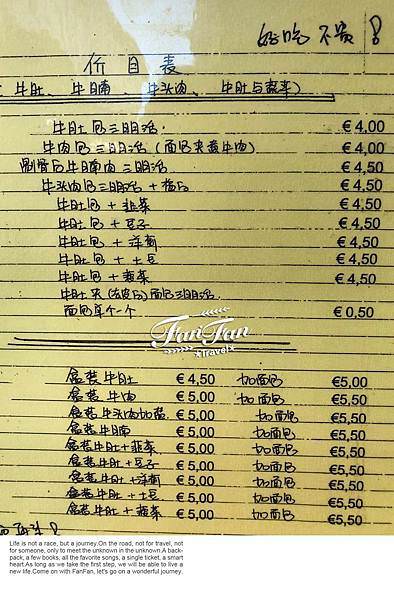 好吃 不贵!
价目表
牛肚、牛腩、牛头肉、牛肚与蔬菜)
牛肚包三明治 €4,00
牛肉包三明治(面包夹煮牛肉) €4,00
剔骨后牛腩肉三明治 €4,50
牛头肉包三明治+ €4,50
牛肚包+韭菜 €4,50
牛肚包+豆子 €4,50
牛肚包+洋蓟 €4,50
牛肚包+土豆 €4,50
牛肚包+菠菜 €4,50
牛肚夹面包三明治
面包单个一个 €0,50
FanFan
Travel
盒装牛肚 €4,50 加面包 €5,00
盒装牛肉 €5,00 加面包 €5,50
盒装牛头肉加 €5,00 加面包 €5,50
盒装牛腩 €5,00 加面包 €5,50
盒装牛肚+韭菜 €5,00 加面包 €5,50
盒装牛肚+豆子 €5,00 加面包 €5,50
盒装牛肚+洋蓟 €5,00 加面包 €5,50
盒装牛肚+土豆 €5,00 加面包 €5,50
盒装牛肚+菠菜 €5,00 加面包 €5,50
Life is not a race, but a journey.On the road, not for travel, not
for someone, only to meet the unknown in the unknown.A back-
pack, a few books, all the favorite songs, a single ticket, a smart
heart.As long as we take the first step, we will be able to live a
new life.Come on with FanFan, let's go on a wonderful journey.